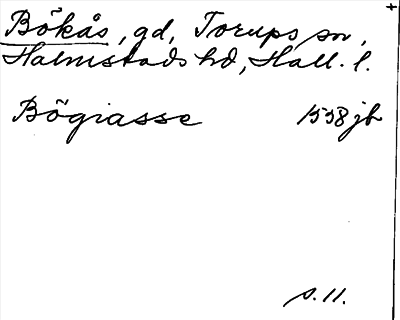 Bökås, gd, Torups sn,
Halmstads hd, Hall. l.
Bögiasse 1558 jb
s. 11.